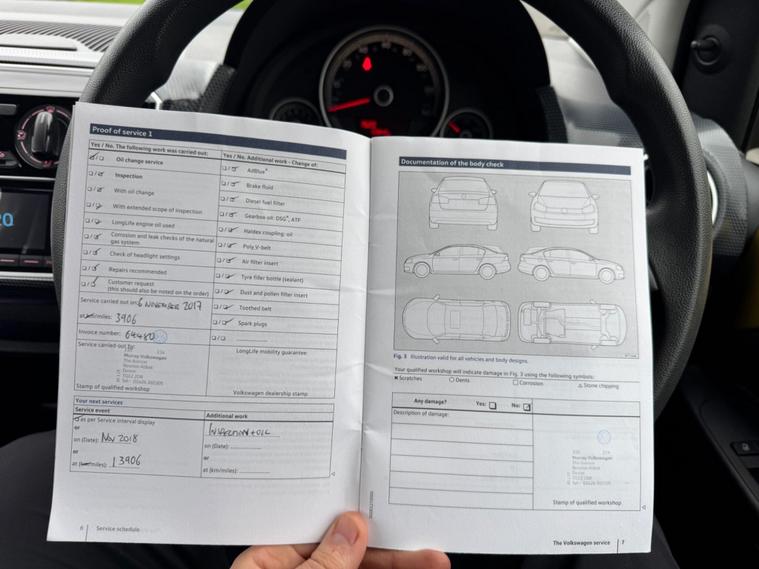 Proof of service 1
Yes / No. The following work was carried out:
Oil change service
Inspection
With oil change
With extended scope of inspection
LongLife engine oil used
Corrosion and leak checks of the natural
gas system
Check of headlight settings
Repairs recommended
Customer request
(this should also be noted on the order)
Service carried out on: 6 NOVEMBER 2017
at km/miles: 3906
Invoice number:
Service carried out by:
Murray Volkswagen
The Avenue
Newton Abbot
Devon
Stamp of qualified workshop
Yes / No. Additional work - Change of:
AdBlue®
Brake fluid
Diesel fuel filter
Gearbox oil: DSG®, ATF
Haldex coupling: oil
Poly V-belt
Air filter insert
Tyre filler bottle (sealant)
Dust and pollen filter insert
Toothed belt
Spark plugs
LongLife mobility guarantee
Volkswagen dealership stamp
Your next services
Service event
as per Service interval display
or
on (Date): NOV 2018
or
at (km/miles): 13906
Additional work
INSPECTION + OIL
on (Date):
or
at (km/miles):
6 Service schedule
Documentation of the body check
Fig. 3 Illustration valid for all vehicles and body designs.
Your qualified workshop will indicate damage in Fig. 3 using the following symbols:
× Scratches ○ Dents □ Corrosion △ Stone chipping
Any damage? Yes: No:
Description of damage:
Murray Volkswagen
The Avenue
Newton Abbot
Devon
Stamp of qualified workshop
The Volkswagen service 7